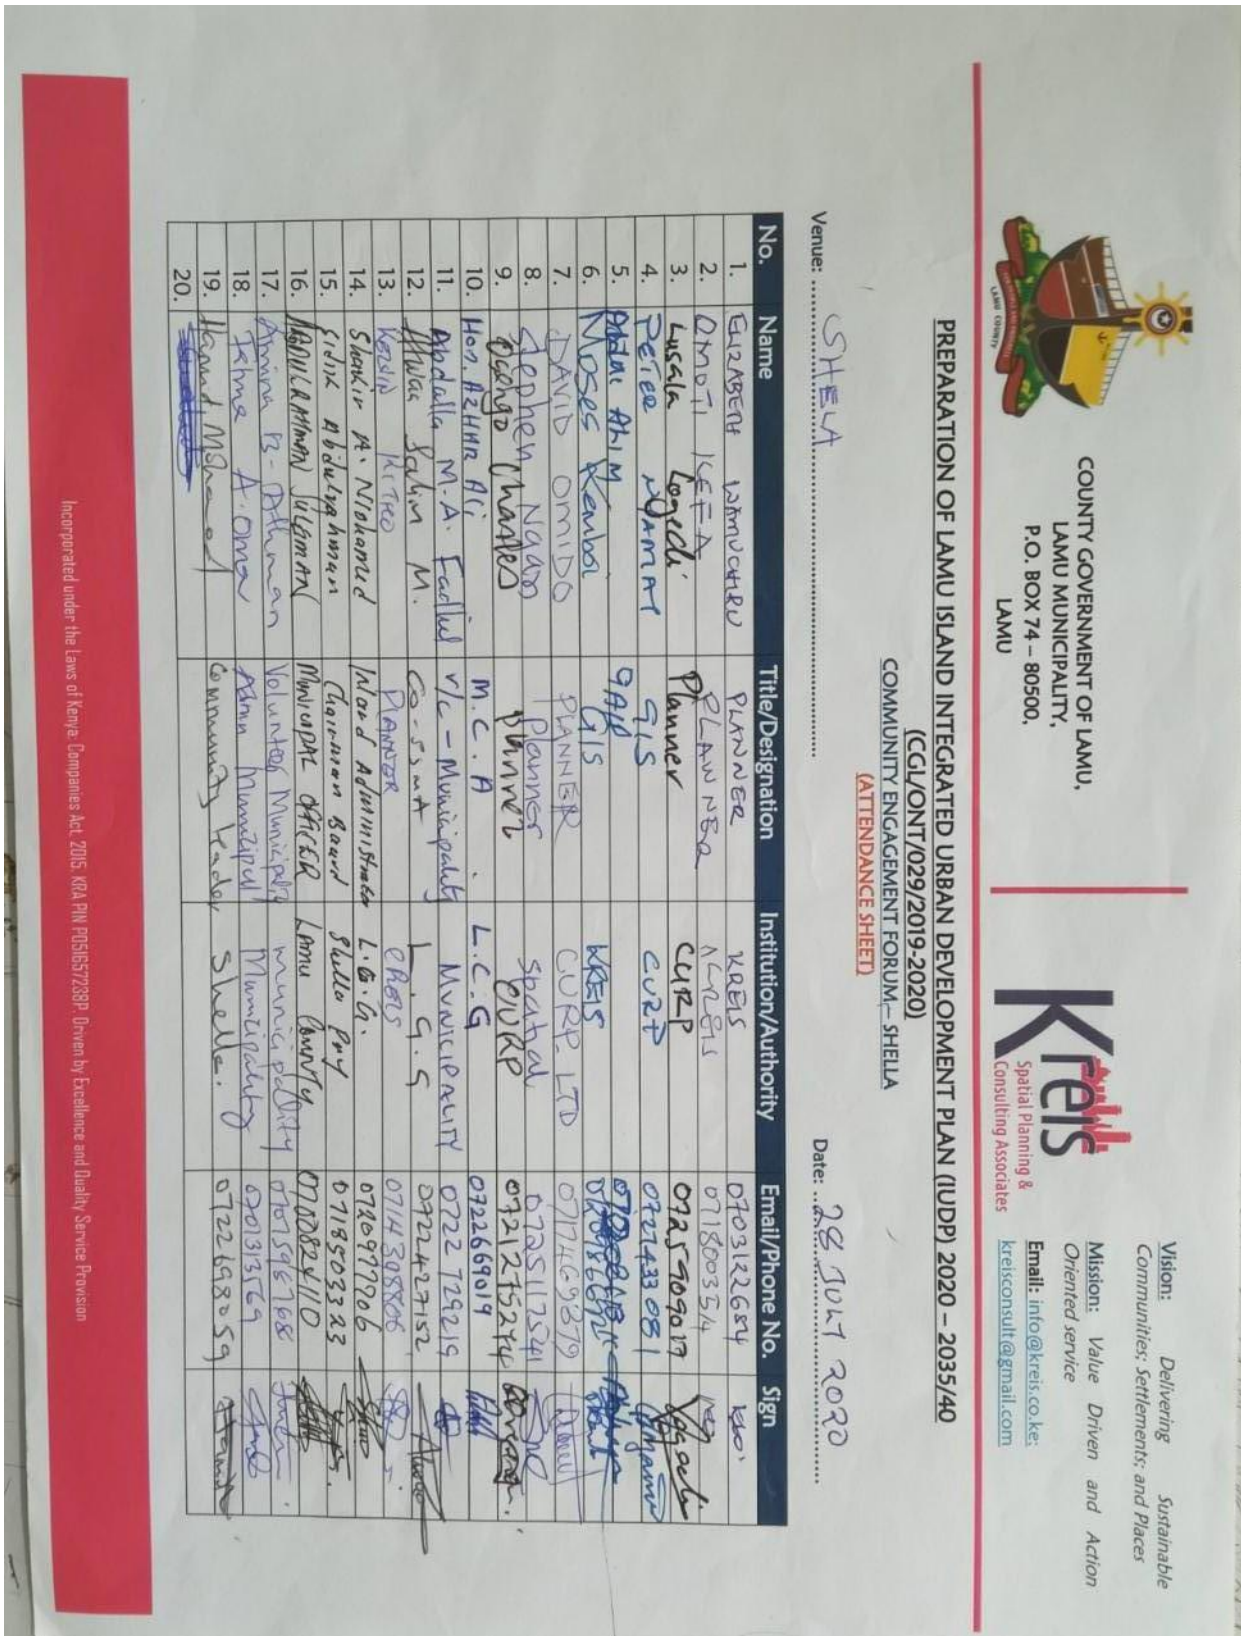 COUNTY GOVERNMENT OF LAMU,
LAMU MUNICIPALITY,
P.O. BOX 74 – 80500,
LAMU
LAMU COUNTY
Kreis
Spatial Planning &
Consulting Associates
Vision: Delivering Sustainable
Communities; Settlements; and Places
Mission: Value Driven and Action
Oriented service
Email: info@kreis.co.ke;
kreisconsult@gmail.com
PREPARATION OF LAMU ISLAND INTEGRATED URBAN DEVELOPMENT PLAN (IUDP) 2020 – 2035/40
(CGL/ONT/029/2019-2020)
COMMUNITY ENGAGEMENT FORUM,– SHELLA
(ATTENDANCE SHEET)
Venue: SHELA Date: 28 JULY 2020
No. Name Title/Designation Institution/Authority Email/Phone No. Sign
1. ELIZABETH WAMUCHIRU PLANNER KREIS 0703122684
2. OMOTI KEFA PLANNER 0718003514
3. Lusala Logedi Planner CURP 0725909017
4. PETER NYAMAI GIS CURP 0727433081
5. Abdul AHIM
6. Moses Kemboi GIS KREIS
7. DAVID OMIDO PLANNER CURP LTD 0717469879
8. Stephen Ngari Planner Spatial 0725117541
9. Ogengo Charles Planner CURP 0721275244
10. Hon. AZHAR Ali M.C.A L.C.G 0722669019
11. Abdalla M.A. Fadhil V/C – Municipality MUNICIPALITY 0722729219
12. Salim M. L.G.G 0722427152
13. KITHO PLANNER 0714398806
14. Shakir A. Mohamed Ward Administrator L.C.G. 0720977906
15. Sidik Abdulrahman Chairman Board Shella Pry 0718503323
16. ABDULRAHMAN SULEMAN MUNICIPAL OFFICER LAMU COUNTY 0708824110
17. Amina B. Athman Volunteer Municipality municipality
18. Fatma A. Omar Admn Municipal Municipality 0701313569
19. Hamid Mohamed Community leader Shella. 0722698059
20.
Incorporated under the Laws of Kenya: Companies Act, 2015. KRA PIN P051657238P. Driven by Excellence and Quality Service Provision